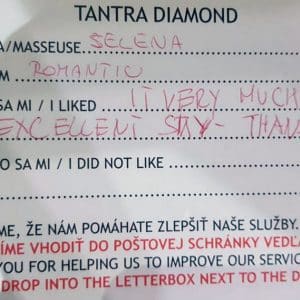 TANTRA DIAMOND
A/MASSEUSE SELENA
M ROMANTIC
SA MI / I LIKED IT VERY MUCH
EXCELLENT STAY - THAN
O SA MI / I DID NOT LIKE
ME, ŽE NÁM POMÁHATE ZLEPŠIŤ NAŠE SLUŽBY.
ÍME VHODIŤ DO POŠTOVEJ SCHRÁNKY VEDĽA
YOU FOR HELPING US TO IMPROVE OUR SERVIC
DROP INTO THE LETTERBOX NEXT TO THE D